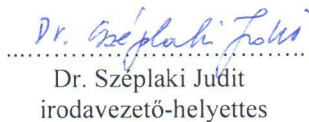 Dr. Széplaki Judit
Dr. Széplaki Judit
irodavezető-helyettes